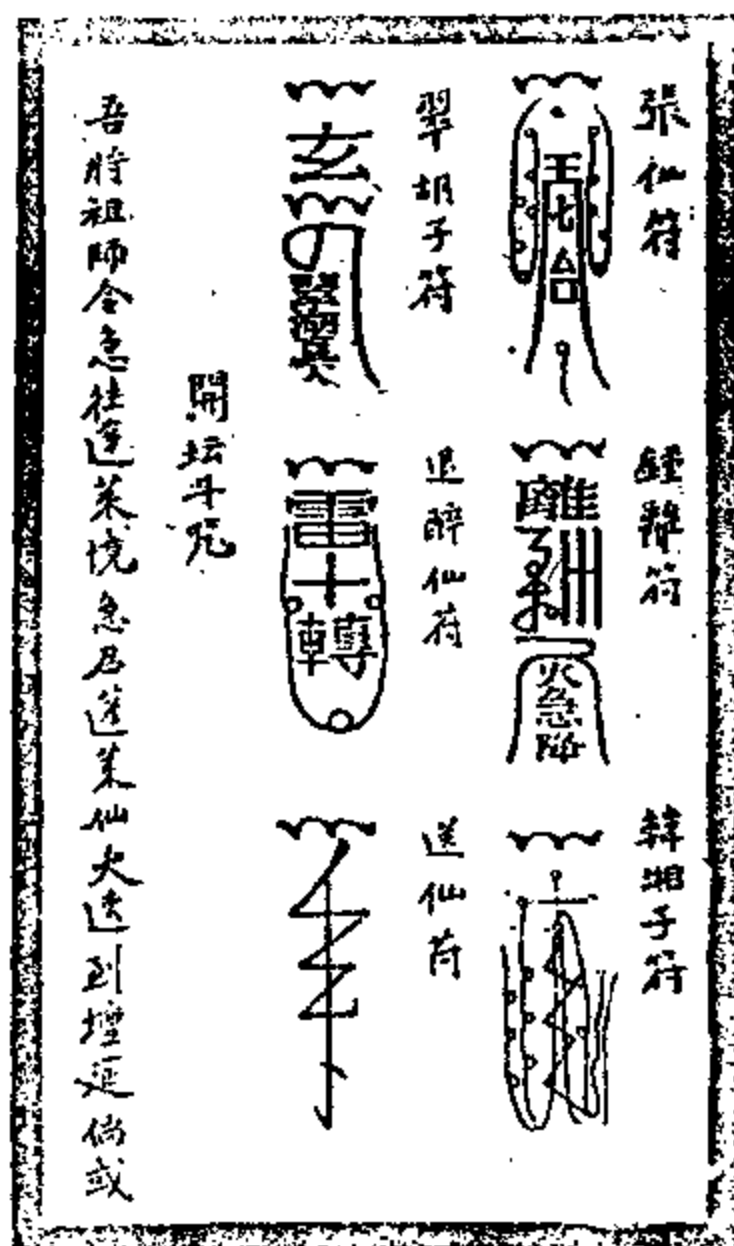 張仙符
鍾離符
韓湘子符
離
火急降
翠胡子符
退醉仙符
送仙符
玄
雷
十
轉
開坛斗咒
吾時祖師令急往蓬萊境急召蓬萊仙火速到壇延倘或